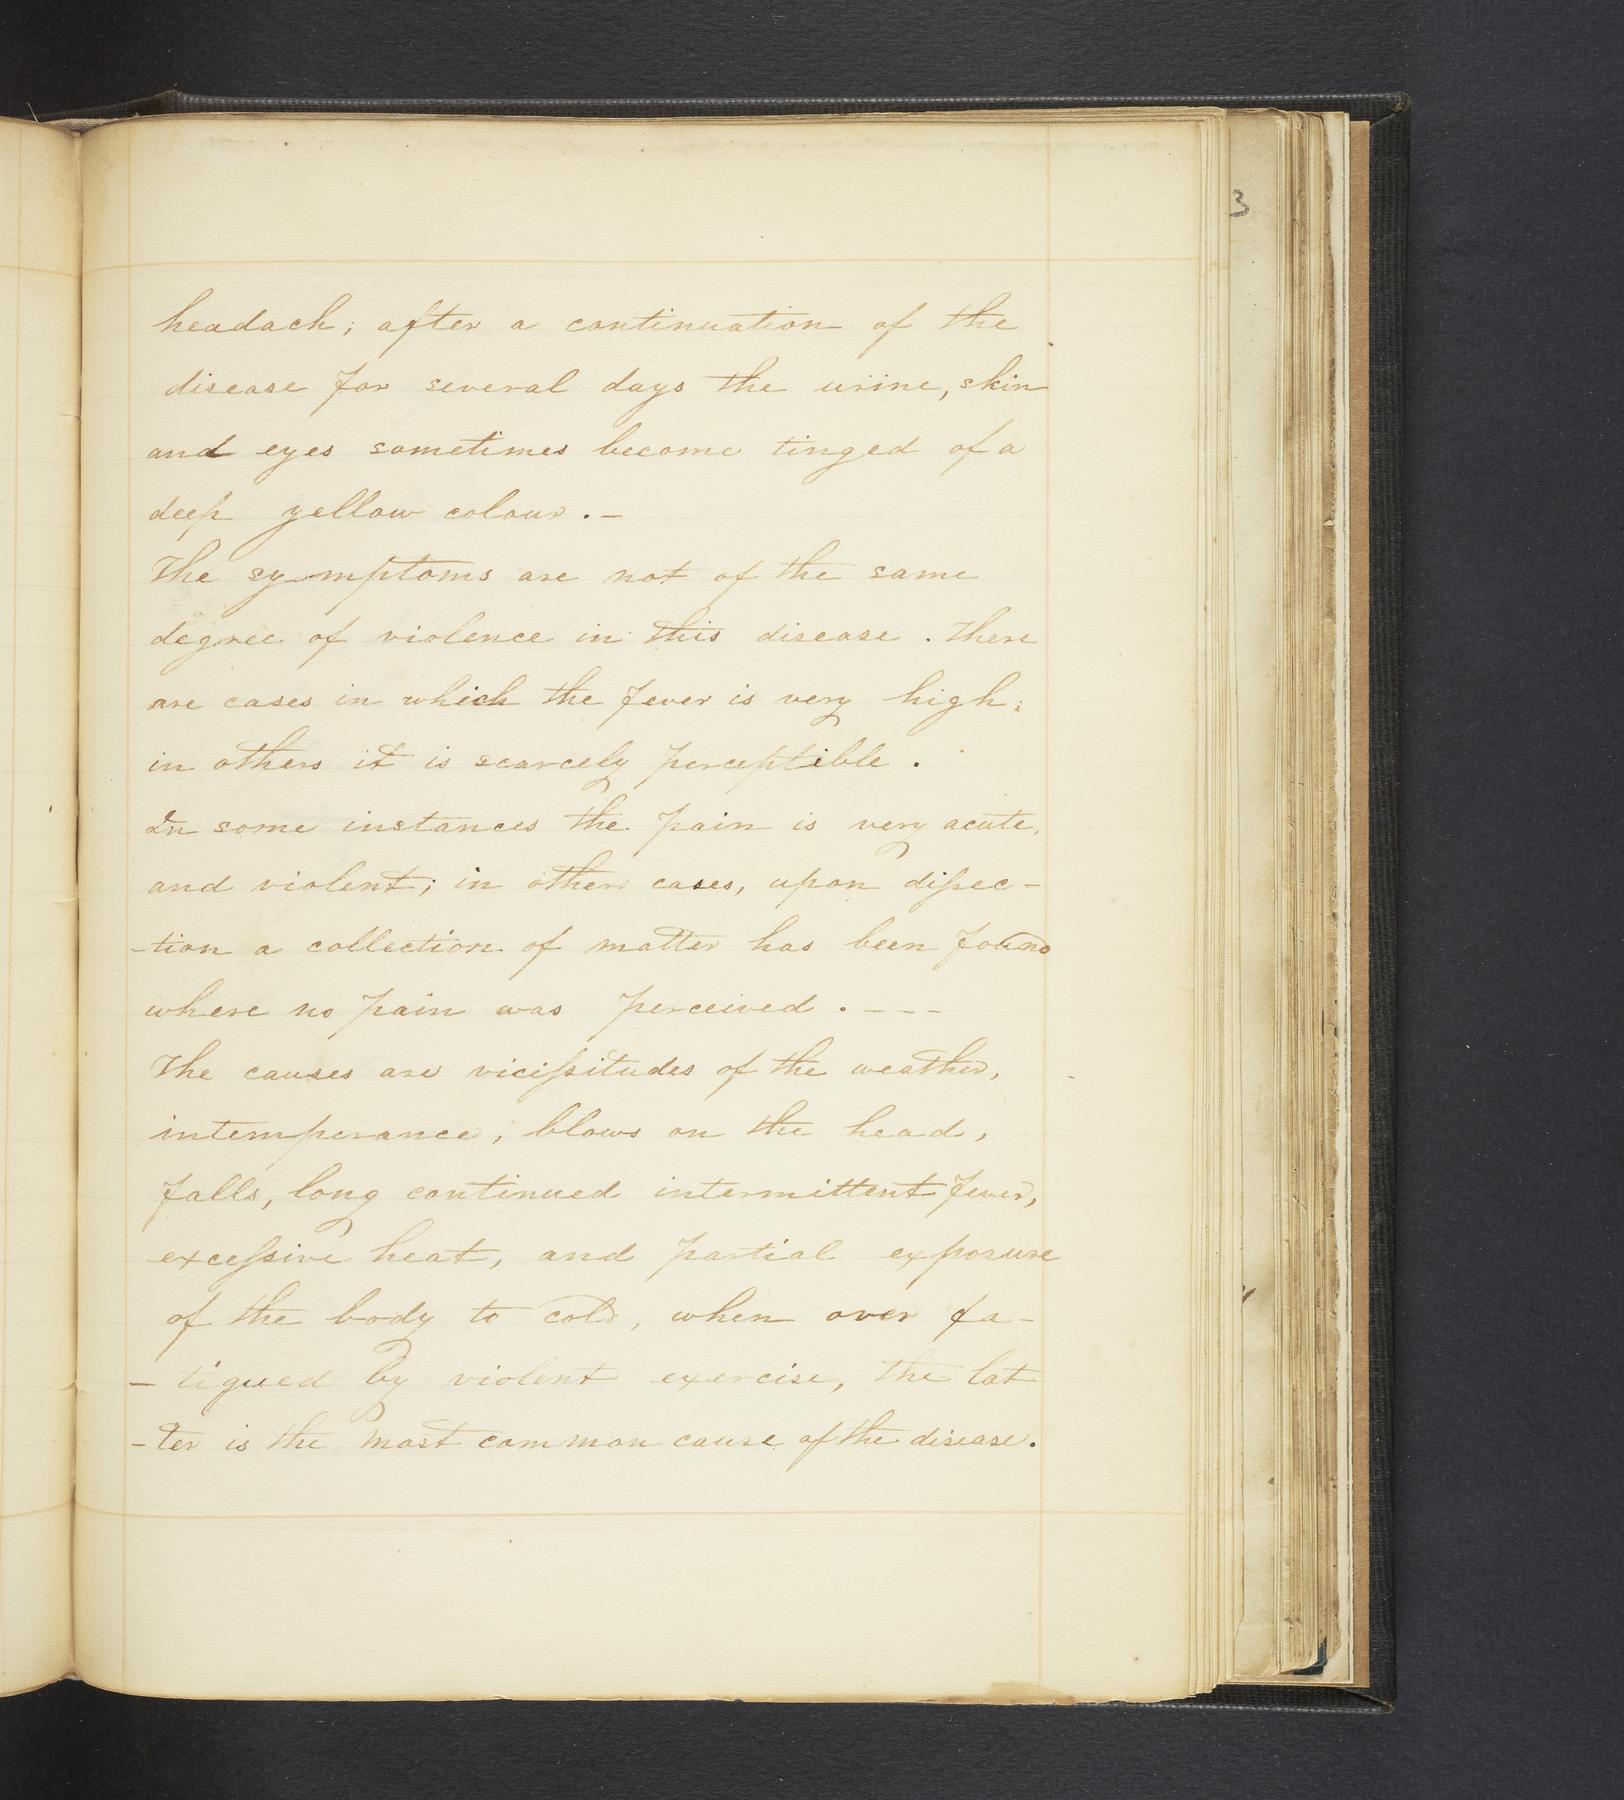 headach; after a continuation of the
disease for several days the urine, skin
and eyes sometimes become tinged of a
deep yellow colour.-
The symptoms are not of the same
degree of violence in this disease. There
are cases in which the fever is very high;
in others it is scarcely perceptible.
In some instances the pain is very acute,
and violent; in other cases, upon dissec-
-tion a collection of matter has been found
where no pain was perceived. - - -
The causes are vicissitudes of the weather,
intemperance, blows on the head,
falls, long continued intermittent fever,
excessive heat, and partial exposure
of the body to cold, when over fa-
- tigued by violent exercise, the lat
-ter is the most common cause of the disease.
3